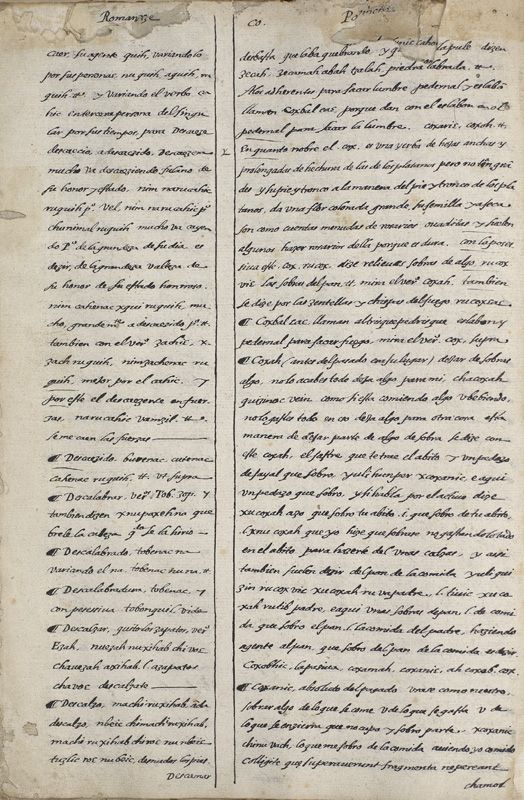 Romanze
caer, su agente quih, variandolo
por sus personas. nu quih, aquih, ru
quih. &c. y variando el verbo ca
hic en tercera persona del singu
lar por sus tiempos, para Descaeza
descaecia, a descaecido. Descaezca
mucho va descaeciendo fulano de
su honor y estado. nim naru cahic
ruquih pe. Vel, nim naru cahic pe
churnimal ruquih mucho va cayen
do Po. de la grandeza de su dia es
dezir, de la grandeza valeza de
su honor de su estado honrroso.
nim cahenac xqui ruquih, mu
cho, grande me. a descaecido pe. &c.
tambien con el vero. zachic. x
zach ruquih, nim zachenac ru
quih, mejor por el cahic. y
por este el descaezerse en fuer
zas. naru cahic vamzil. &c.
se me caen las fuerzas
¶ Descaezido. cutenac
cahenac ruquih. &c. vt supra
¶ Descalabrar. vero. Tob. 3oqi. y
tambien dizen xnupaxehna que
brele la cabeza qdo. se la hirio
¶ Descalabrado. tobenac na
variando el na. tobenac nu na. &c.
¶ Descalabradura, tobenac. y
con passiva tobonquil, vide
¶ Descalzar, quitar los zapatos, vero.
Ezah. nuezah nuxihab chi voc
chauezah axihab. l. azapatos
chavoc descalzate
¶ Descalzo, machi ruxihab, ade
descalzo, nbeic chi machi ruxihab,
macha ruxihab chi roc nu beic
tuzlic roc nu beic, desnudos los pies.
Descamar
Co. Po
desbasta que laba quebrando y la pule dizen
zecah. zecamah abah tzalah, piedra labrada. &c.
A los adherentes para sacar lumbre pedernal y eslabon
llaman coxbal cac, porque dan con el eslabon en el
pedernal para sacar la lumbre. coxaric, coxah. &c.
En quanto nombre el cox. es una yerba de hojas anchas y
prolongadas de hechura de las de los platanos pero no tan gran
des y su pie y tronco a la manera del pie y tronco de los pla
tanos, da una flor colorada grande, su semilla ya seca
son como cuentas menudas de rosarios y suelen
algunos hazer rosarios della porque es dura. con la poses
siva este cox, rucox. dize relieues sobras de algo, rucox
vic las sobras del pan. &c. mira el vero. coxah. tambien
se dize por las zentellas y chispas del fuego rucox cac
¶ Coxbal cac. llaman al trisque pedrisque eslabon y
pedernal para sacar fuego. mira el vero. cox, supra
¶ Coxah (antes del pasado en su lugar) dexar de sobras
algo, no lo acabes todo deja algo para mi, chacoxah
quizinoc vein como si esta comiendo algo v bebiendo,
no lo gastes todo en eso deja algo para otra cosa esta
manera de dejar parte de algo de sobra se dize con
este coxah. el sastre que te trae el abito y un pedazo
de sayal que sobro, yuli hun por xcoxanic e aqui
un pedazo que sobro, y si habla por el activo dize
xucoxah azo que sobro tu abito. i. que sobro de tu abito,
l. xnu coxah que yo hize que sobrase no gastandolo todo
en el abito para hazerte del unas calzas, y asi
tambien suelen dezir del pan de la comida yuli qui
zin rucox vic xucoxah ruva padre, l. tiuic xuco
xah rutib padre, e aqui unas sobras de pan, l. de comi
da, que sobro el pan, l. la comida del padre, haziendo
agente al pan, que sobro del pan de la comida es dezir
Coxobhic, la pasiva, coxamah, coxanic, ah coxab. cox.
¶ Coxanic, absoluto del pasado vase como nuestro,
sobrar algo de lo que se come v de lo que se gasta v de
lo que se enzierra que no cupo y sobro parte. xcoxanic
chinu vach, lo que me sobro de la comida auiendo yo comido
colligite quae superaverunt fragmenta ne pereant
chamol